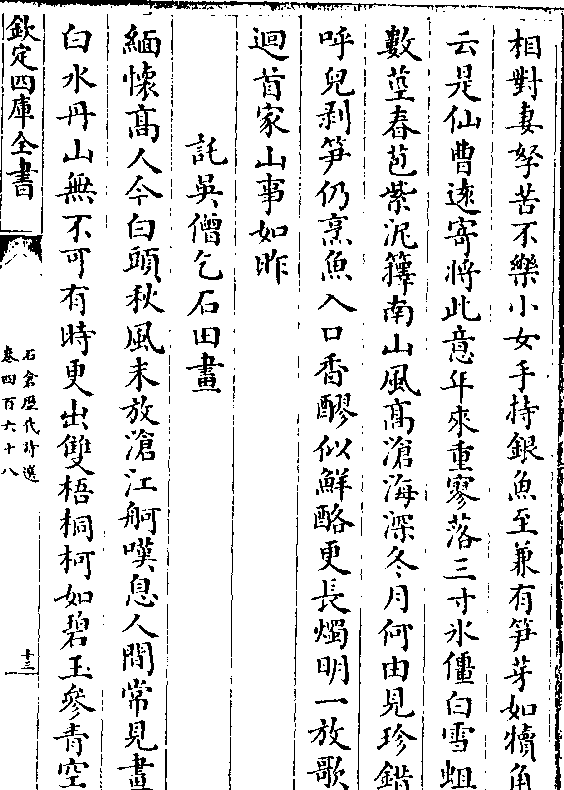 相對妻孥苦不樂小女手持銀魚至兼有笋芽如犢角
云是仙曹遠寄將此意年來重寥落三寸氷僵白雪蛆
數莖春苞紫泥籜南山風髙滄海深冬月何由見珍錯
呼兒剥笋仍烹魚入口香醪似鮮酪更長燭明一放歌
迴首家山事如昨
託吳僧乞石田畫
緬懷髙人今白頭秋風未放滄江舸嘆息人間常見畫
白水丹山無不可有時更出雙梧桐柯如碧玉參青空
欽定四庫全書
石倉歷代詩選
卷四百六十八
十三